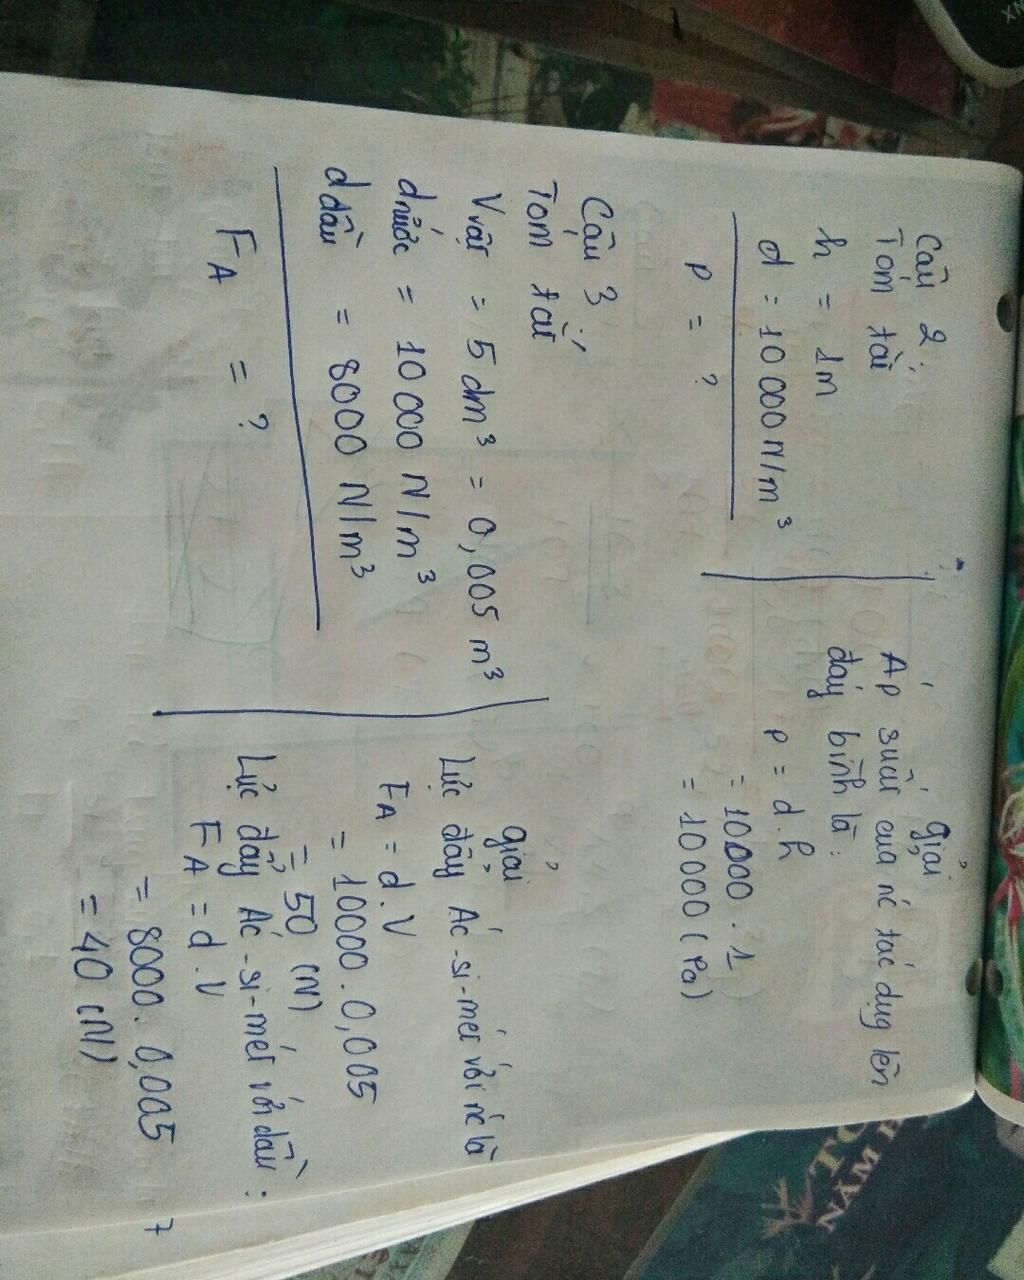 Câu 2:
Tóm tắt
h = 1m
d = 10 000 N/m³
p = ?
giải
Áp suất của nc tác dụg lên
đáy bình là:
p = d.h
= 10000 . 1
= 10 000 (Pa)
Câu 3
Tóm tắt
Vvật = 5 dm³ = 0,005 m³
dnước = 10 000 N/m³
ddầu = 8000 N/m³
FA = ?
giải
Lực đẩy Ác-si-mét với nc là
FA = d.V
= 10000 . 0,005
= 50 (N)
Lực đẩy Ác-si-mét với dầu:
FA = d.V
= 8000 . 0,005
= 40 (N)
7